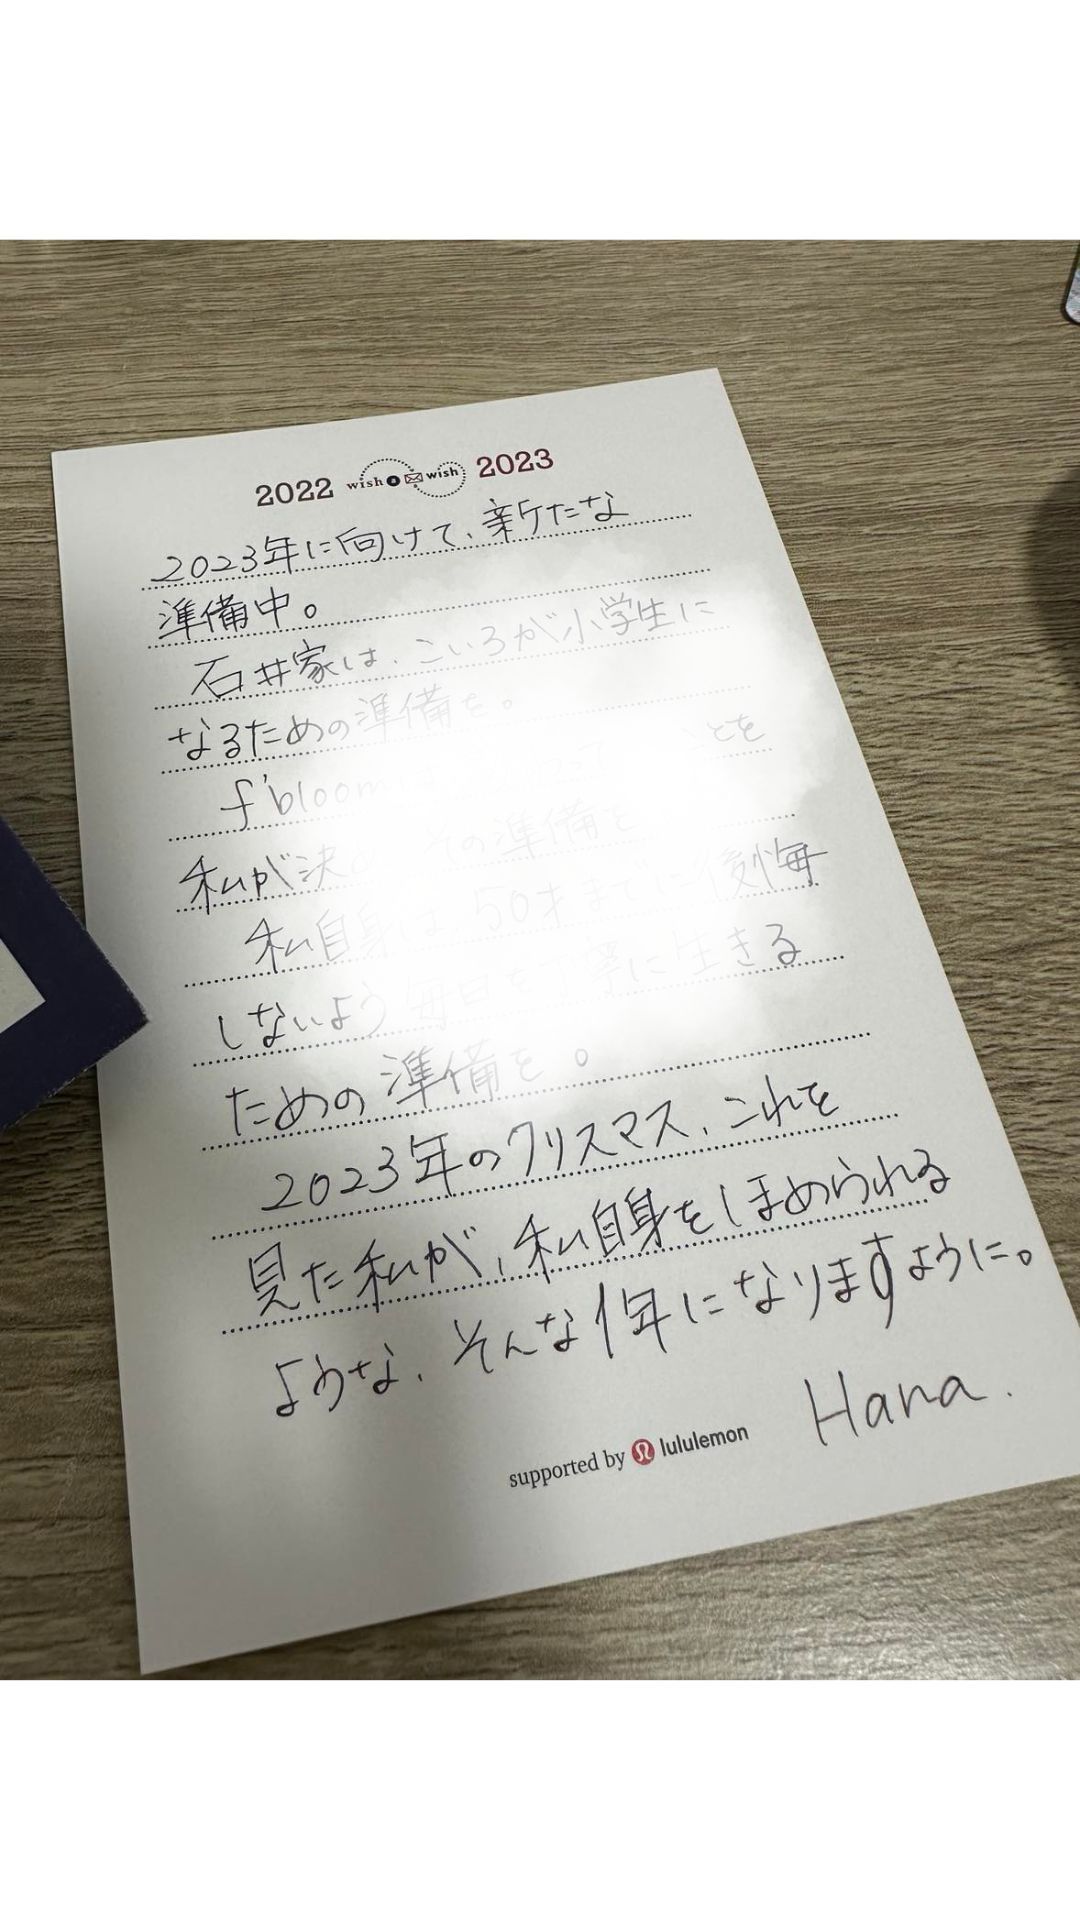 2022 wish wish 2023
2023年に向けて、新たな
準備中。
石井家は、こいろが小学生に
なるための準備を。
f'bloomは ことを
私が決 その準備を
私自身は、50才までに後悔
しないよう毎日を丁寧に生きる
ための準備を。
2023年のクリスマス、これを
見た私が、私自身をほめられる
ような、そんな1年になりますように。
Hana.
supported by lululemon